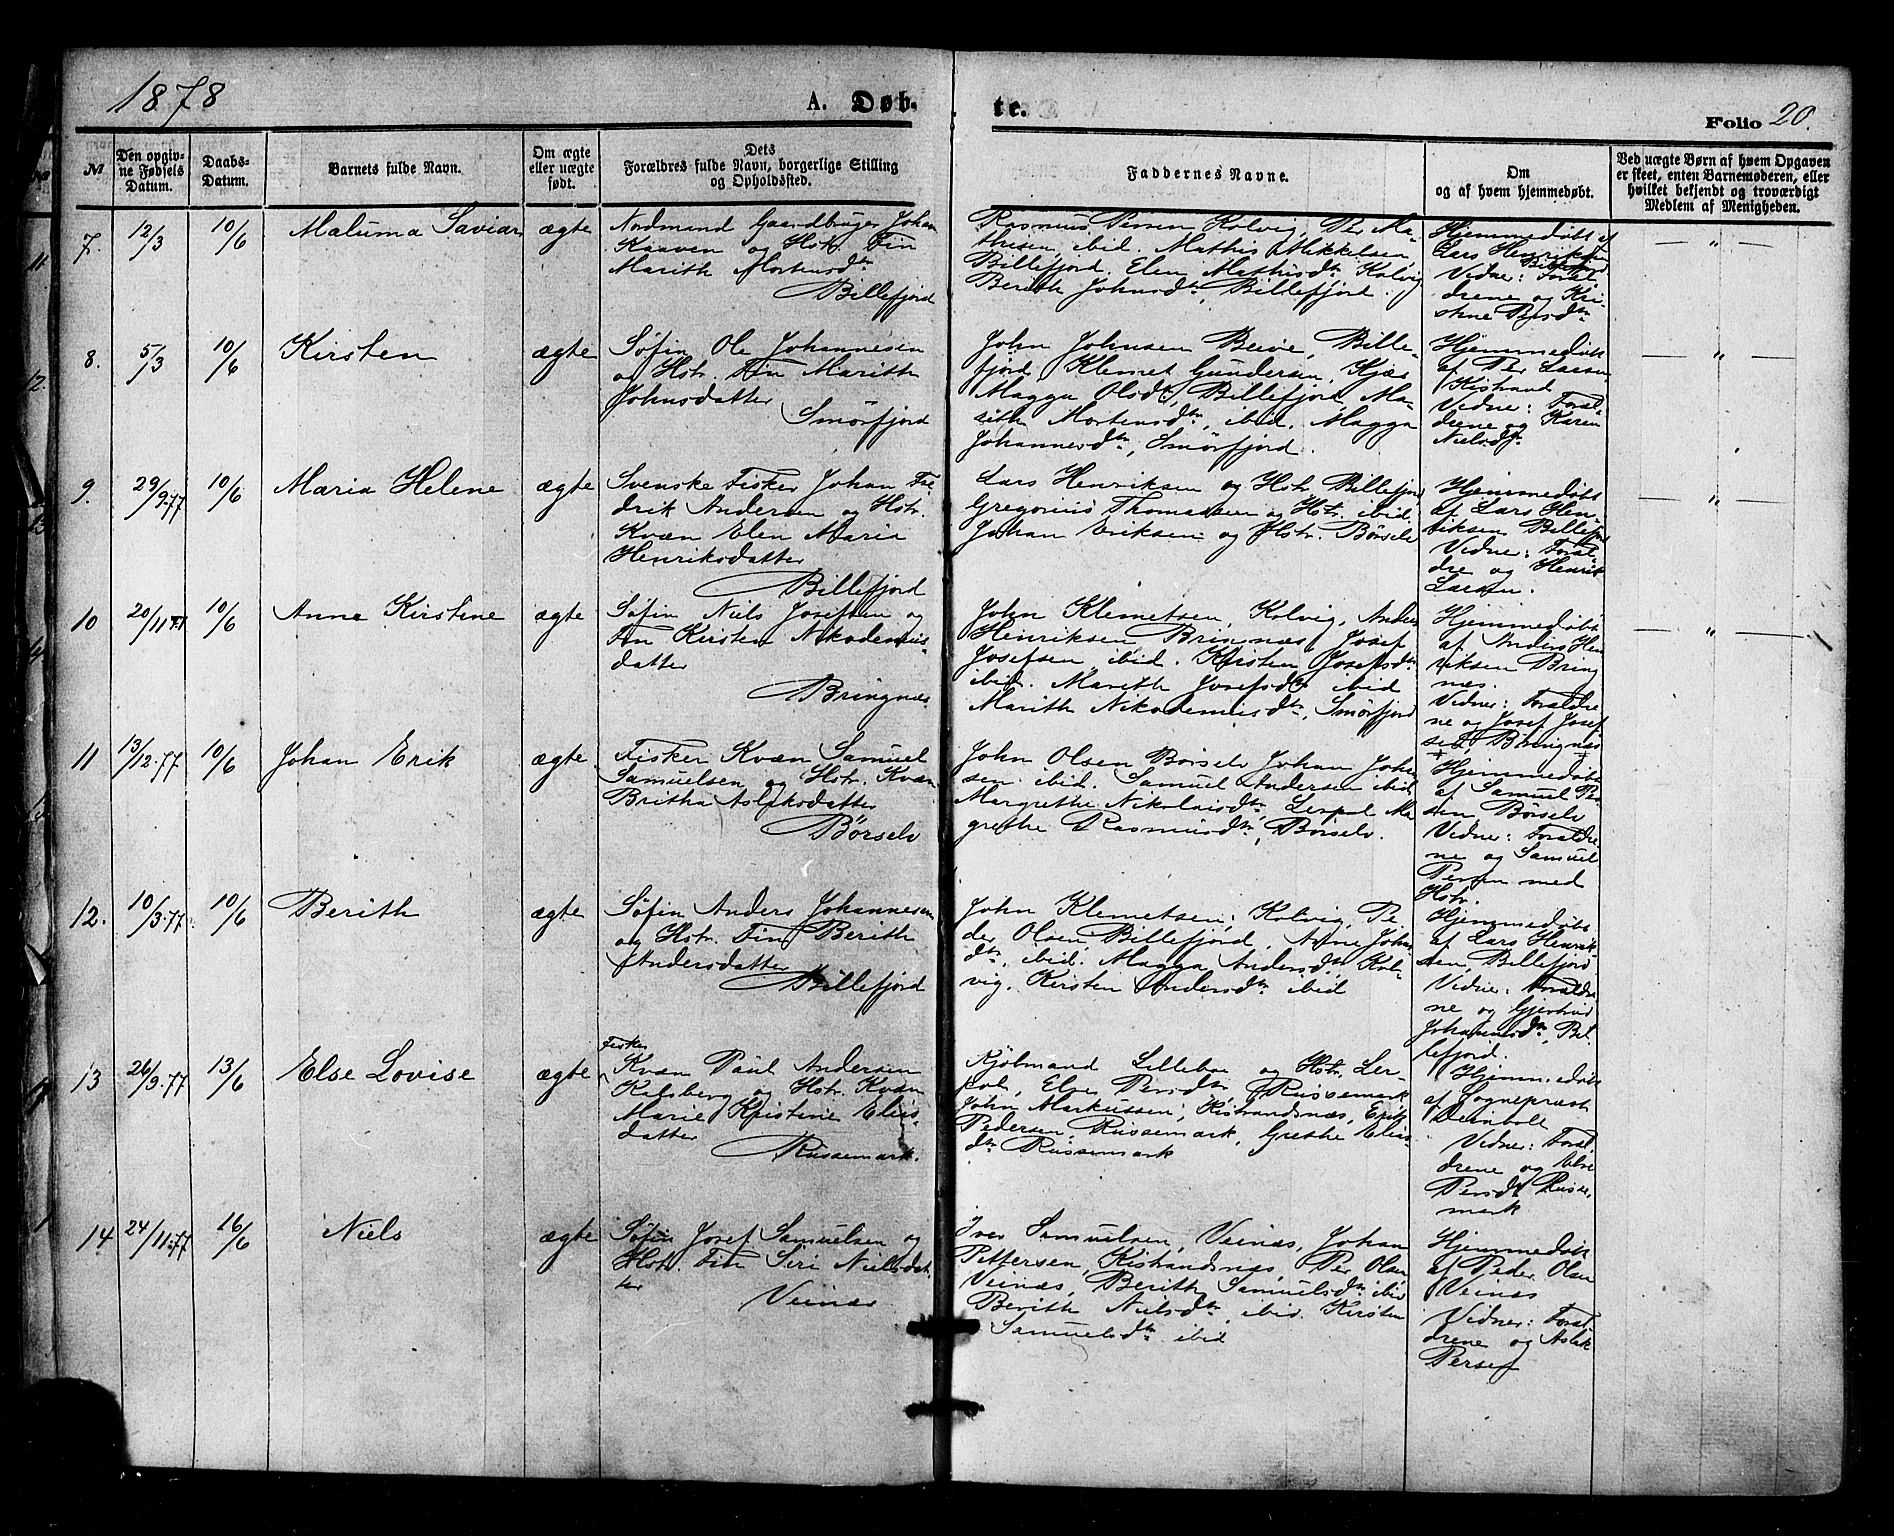 1878
A. Døb-
te.
Folio 20.
№
Den opgiv-
ne Fødsels
Datum.
Daabs-
Datum.
Barnets fulde Navn.
Om ægte
eller uægte
født.
Dets
Forældres fulde Navn, borgerlige Stilling
og Opholdssted.
Faddernes Navne.
Om
og af hvem hjemmedøbt.
Ved uægte Børn af hvem Opgaven
er skeet, enten Barnemoderen, eller
hvilket bekjendt og troværdigt
Medlem af Menigheden.
7.
12/3
10/6
Maluma Savian
ægte
Nordmand Gaardbruger Johan
Kaaven og Hstr. Fin
Marith Mortensdtr
Billefjord
Rasmus Persen Kolvig, Per Ma-
thisen ibid. Mathis Mikkelsen
Billefjord. Elen Mathisdtr Kolvig
Berith Johnsdtr, Billefjord.
Hjemmedøbt af
Lars Henriksen
Billefjord
Vidner: Foræl-
drene og Kri-
stine Persdtr
— " —
8.
5/3
10/6
Kirsten
ægte
Søfin Ole Johannesen
og Hstr. Fin Marith
Johnsdatter
Smørfjord
John Johnsen Beive, Bille-
fjord Klemet Gundersen, Kjæs
Magga Olsdtr, Billefjord, Ma-
rith Mortensdtr, ibid. Magga
Johannesdtr, Smørfjord.
Hjemmedøbt
af Per Larsen
Kistrand
Vidner: Foræl-
drene og Karen
Nielsdtr
— " —
9.
29/9.77
10/6
Maria Helene
ægte
Svenske Fisker Johan Fre-
drik Andersen og Hstr.
Kvæn Elen Maria
Henriksdatter
Billefjord
Lars Henriksen og Hstr. Billefjord
Gregorius Thomassen og Hstr. ibid.
Johan Eriksen og Hstr. Børselv
Hjemmedøbt
af Lars Hen-
riksen Billefjord
Vidner: Foræl-
dre og Henrik
Larsen.
— " —
10
20/11 77
10/6
Anne Kirstine
ægte
Søfin Niels Josefsen og
Fin Kirsten Nikodemus-
datter
Bringnæs
John Klemetsen, Kolvig, Anders
Henriksen Bringnæs Josef
Josefsen ibid. Kirsten Josefsdtr
ibid. Marith Josefsdtr ibid
Marith Nikodemusdtr, Smørfjord
Hjemmedøbt
af Anders Hen
riksen Bring
næs.
Vidner: Forældre-
ne og Josef Josef
sen, Bringnæs
— " —
11
13/12.77
10/6
Johan Erik
ægte
Fisker Kvæn Samuel
Samuelsen og Hstr. Kvæn
Britha Aslaksdatter
Børselv
John Olsen Børselv Johan John
sen ibid. Samuel Andersen ibid
Margrethe Nikolaisdtr, Lerpol Ma
grethe Rasmusdtr, Børselv.
Hjemmedøbt
af Samuel Per-
sen Børselv
Vidner: Forældre-
ne og Samuel
Persen med
Hstr.
12.
10/3.77
10/6
Berith
ægte
Søfin Anders Johannesen
og Hstr. Fin Berith
Andersdatter
Billefjord
John Klemetsen, Kolvig, Pe-
der Olsen, Billefjord. Anne Johns
dtr, ibid. Magga Andersdtr, Kol-
vig. Kirsten Andersdtr ibid
Hjemmedøbt
af Lars Henrik-
sen, Billefjord
Vidner: Forældre
ne og Gjertrud
Johannesdtr, Bil-
lefjord.
13
26/9.77
13/6
Else Lovise
ægte
Fisker
Kvæn Paul Andersen
Karlsberg og Hstr. Kvæn
Marie Kristine Elias
datter
Russemark.
Kjøbmand Lillebo og Hstr. Ler-
pol, Else Persdtr, Russemark
John Markussen, Kistrandsnæs, Erik
Pedersen Russemark, Grethe Elias
dtr Russemark
Hjemmedøbt
af Sogneprest
Deinboll
Vidner: Foræl-
drene og Else
Persdtr Russe-
mark
14
24/11.77
16/6
Niels
ægte
Søfin Josef Samuelsen og
Hstr. Fin Siri Nielsdat-
ter
Veinæs
Iver Samuelsen, Veinæs, Johan
Pettersen, Kistrandsnæs, Per Olsen
Veinæs, Berith Samuelsdtr ibid
Berith Nielsdtr ibid. Kirsten
Samuelsdtr ibid
Hjemmedøbt
af Peder Olsen
Veinæs
Vidner: Foræl-
drene og Aslak
Persen